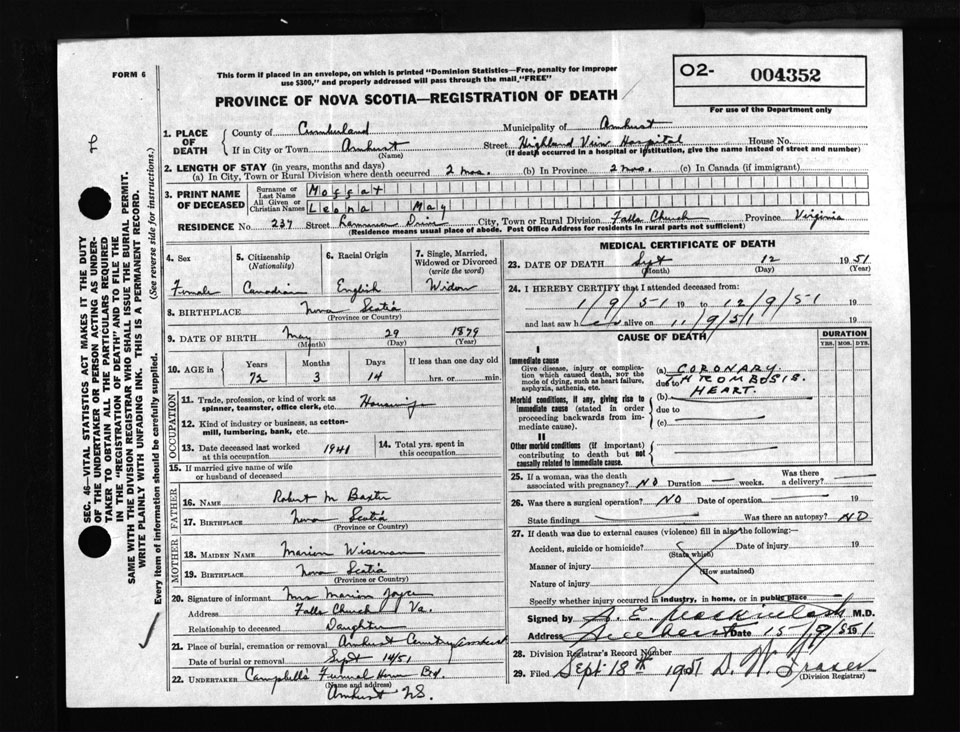 FORM 6
This form if placed in an envelope, on which is printed "Dominion Statistics—Free, penalty for improper
use $300," and properly addressed will pass through the mail, "FREE"
O2- 004352
For use of the Department only
PROVINCE OF NOVA SCOTIA—REGISTRATION OF DEATH
1. PLACE OF DEATH
County of Cumberland Municipality of Amherst
If in City or Town Amherst Street Highland View Hospital House No.
(Name) (If death occurred in a hospital or institution, give the name instead of street and number)
2. LENGTH OF STAY (in years, months and days)
(a) In City, Town or Rural Division where death occurred 2 mos. (b) In Province 2 mos. (c) In Canada (if immigrant)
3. PRINT NAME OF DECEASED
Surname or Last Name Moffat
All Given or Christian Names Leona May
RESIDENCE No. 237 Street Drive City, Town or Rural Division Falls Church Province Virginia
(Residence means usual place of abode. Post Office Address for residents in rural parts not sufficient)
4. Sex
Female
5. Citizenship
(Nationality)
Canadian
6. Racial Origin
English
7. Single, Married, Widowed or Divorced
(write the word)
Widow
8. BIRTHPLACE Nova Scotia
(Province or Country)
9. DATE OF BIRTH May 29 1879
(Month) (Day) (Year)
10. AGE in Years Months Days If less than one day old
72 3 14 hrs. or min.
OCCUPATION
11. Trade, profession, or kind of work as
spinner, teamster, office clerk, etc. Housewife
12. Kind of industry or business, as cotton-
mill, lumbering, bank, etc.
13. Date deceased last worked
at this occupation 1941
14. Total yrs. spent in
this occupation
15. If married give name of wife
or husband of deceased
FATHER
16. NAME Robert M Baxter
17. BIRTHPLACE Nova Scotia
(Province or Country)
MOTHER
18. MAIDEN NAME Marion Wiseman
19. BIRTHPLACE Nova Scotia
(Province or Country)
20. Signature of informant Mrs Marion Joyce
Address Falls Church Va.
Relationship to deceased Daughter
21. Place of burial, cremation or removal Amherst Cemetery Amherst
Date of burial or removal Sept 14/51
22. UNDERTAKER Campbell's Funeral Home
(Name and address)
Amherst NS.
MEDICAL CERTIFICATE OF DEATH
23. DATE OF DEATH Sept 12 1951
(Month) (Day) (Year)
24. I HEREBY CERTIFY that I attended deceased from:
1/9/51 19 to 12/9/51 19
and last saw h er alive on 11/9/51 19
CAUSE OF DEATH
DURATION
YRS. MOS. DYS.
I
Immediate cause
Give disease, injury or complica-
tion which caused death, NOT the
mode of dying, such as heart failure,
asphyxia, asthenia, etc.
(a) CORONARY
due to THROMBOSIS.
(b) HEART.
due to
(c)
Morbid conditions, if any, giving rise to
immediate cause (stated in order
proceeding backwards from im-
mediate cause).
II
Other morbid conditions (if important)
contributing to death but not
causally related to immediate cause.
25. If a woman, was the death
associated with pregnancy? NO Duration — weeks. Was there a delivery?
26. Was there a surgical operation? NO Date of operation 19
State findings Was there an autopsy? NO
27. If death was due to external causes (violence) fill in also the following:—
Accident, suicide or homicide? Date of injury 19
(State which)
Manner of injury
(How sustained)
Nature of injury
Specify whether injury occurred in industry, in home, or in public place
Signed by M.D.
Address Amherst Date 15/9/1951
28. Division Registrar's Record Number
29. Filed Sept 18th 1951 D. W. Fraser
(Division Registrar)
SEC. 46—VITAL STATISTICS ACT MAKES IT THE DUTY
OF THE UNDERTAKER OR PERSON ACTING AS UNDER-
TAKER TO OBTAIN ALL THE PARTICULARS REQUIRED
IN THE "REGISTRATION OF DEATH" AND TO FILE THE
SAME WITH THE DIVISION REGISTRAR WHO SHALL ISSUE THE BURIAL PERMIT.
WRITE PLAINLY WITH UNFADING INK. THIS IS A PERMANENT RECORD.
Every item of information should be carefully supplied. (See reverse side for instructions.)